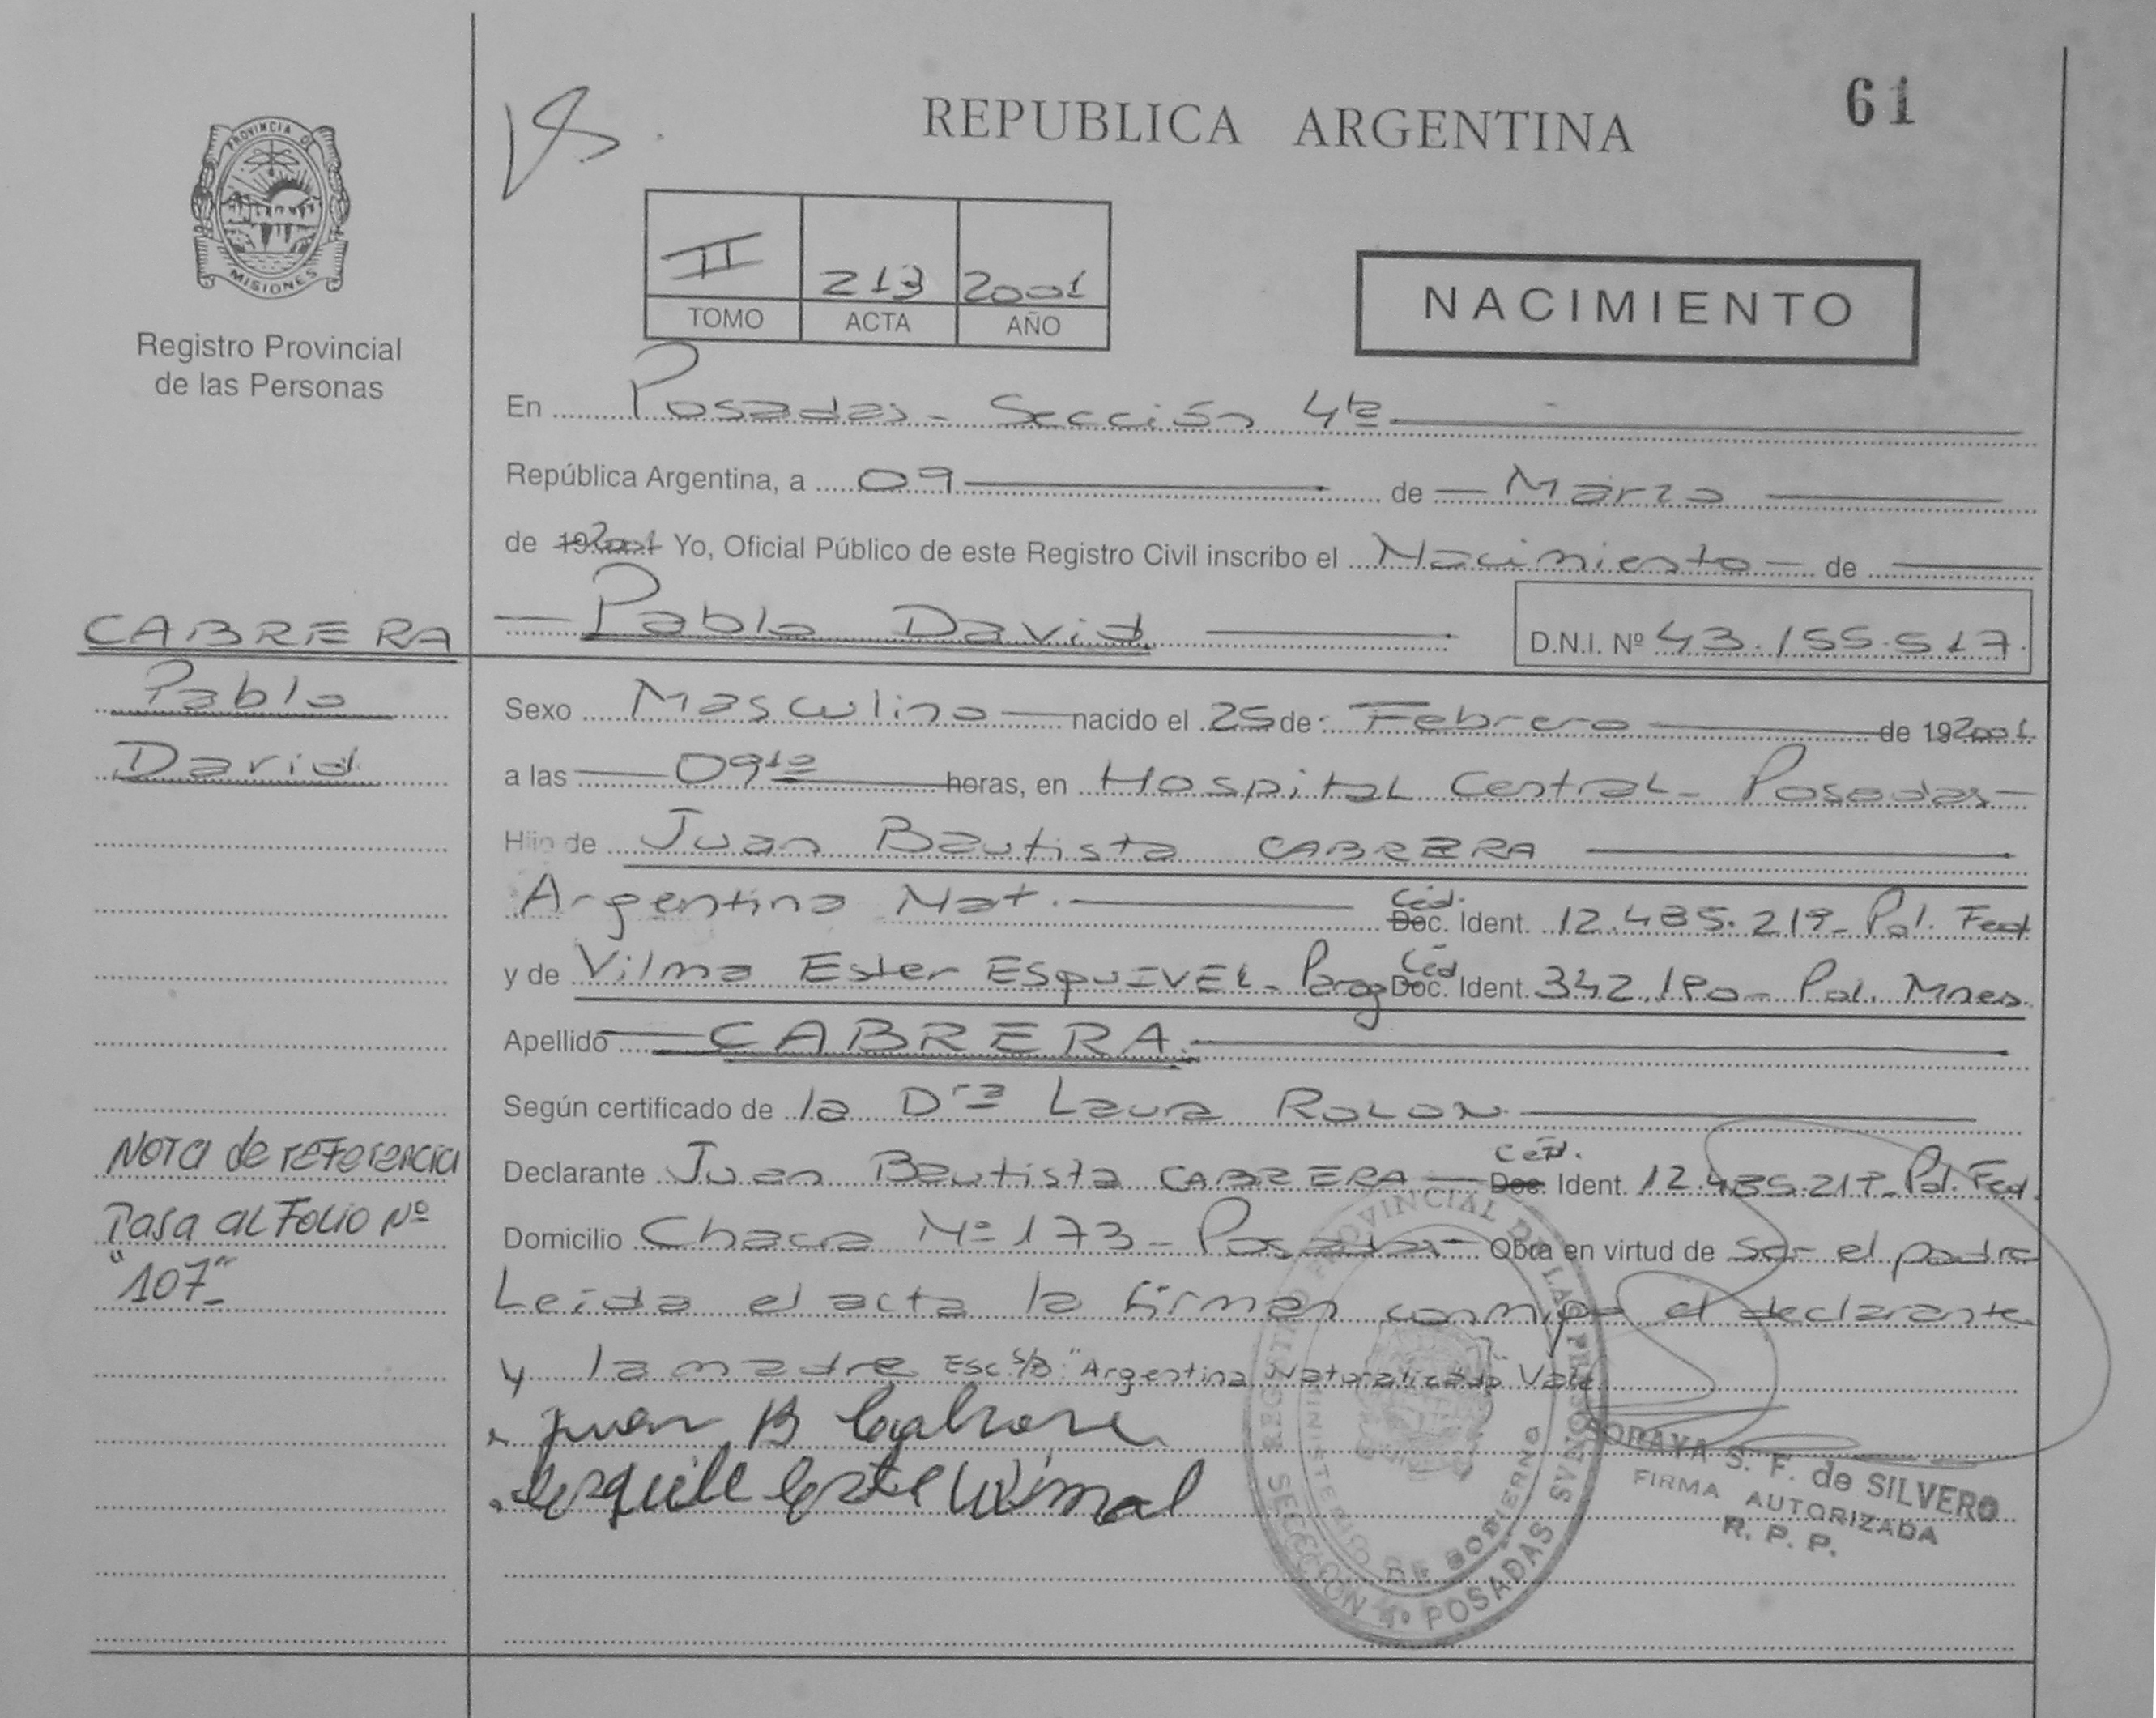 REPUBLICA ARGENTINA
61
PROVINCIA DE
MISIONES
Registro Provincial
de las Personas
II 213 2001
TOMO ACTA AÑO
NACIMIENTO
En Posadas - Sección 4ta
República Argentina, a 09 de Marzo
de 19 2001 Yo, Oficial Público de este Registro Civil inscribo el Nacimiento de
Pablo David D.N.I. Nº 43.155.517
CABRERA
Pablo
David
Sexo Masculino nacido el 25 de Febrero de 19 2001
a las 09 10 horas, en Hospital Central - Posadas
Hijo de Juan Bautista CABRERA
Argentino Nat. Céd. Doc. Ident. 12.435.219 - Pol. Fed
y de Vilma Ester ESQUIVEL - Parag Céd Doc. Ident. 342.180 - Pol. Mnes.
Apellido CABRERA
Según certificado de la Dra Laura ROLON
Declarante Juan Bautista CABRERA Céd. Doc. Ident. 12.435.219 - Pol. Fed.
Domicilio Chacra Nº 173 - Posadas - Obra en virtud de ser el padre
Leída el acta la firman conmigo el declarante
y la madre Esc. S/B: "Argentina Naturalizado" Vale
Juan B Cabrera
NOTA de REFERENCIA
Pasa al Folio Nº
"107"-
REGISTRO PROVINCIAL DE LAS PERSONAS
MINISTERIO DE GOBIERNO
SECCION 4º POSADAS
SORAYA S. F. de SILVERO
FIRMA AUTORIZADA
R. P. P.